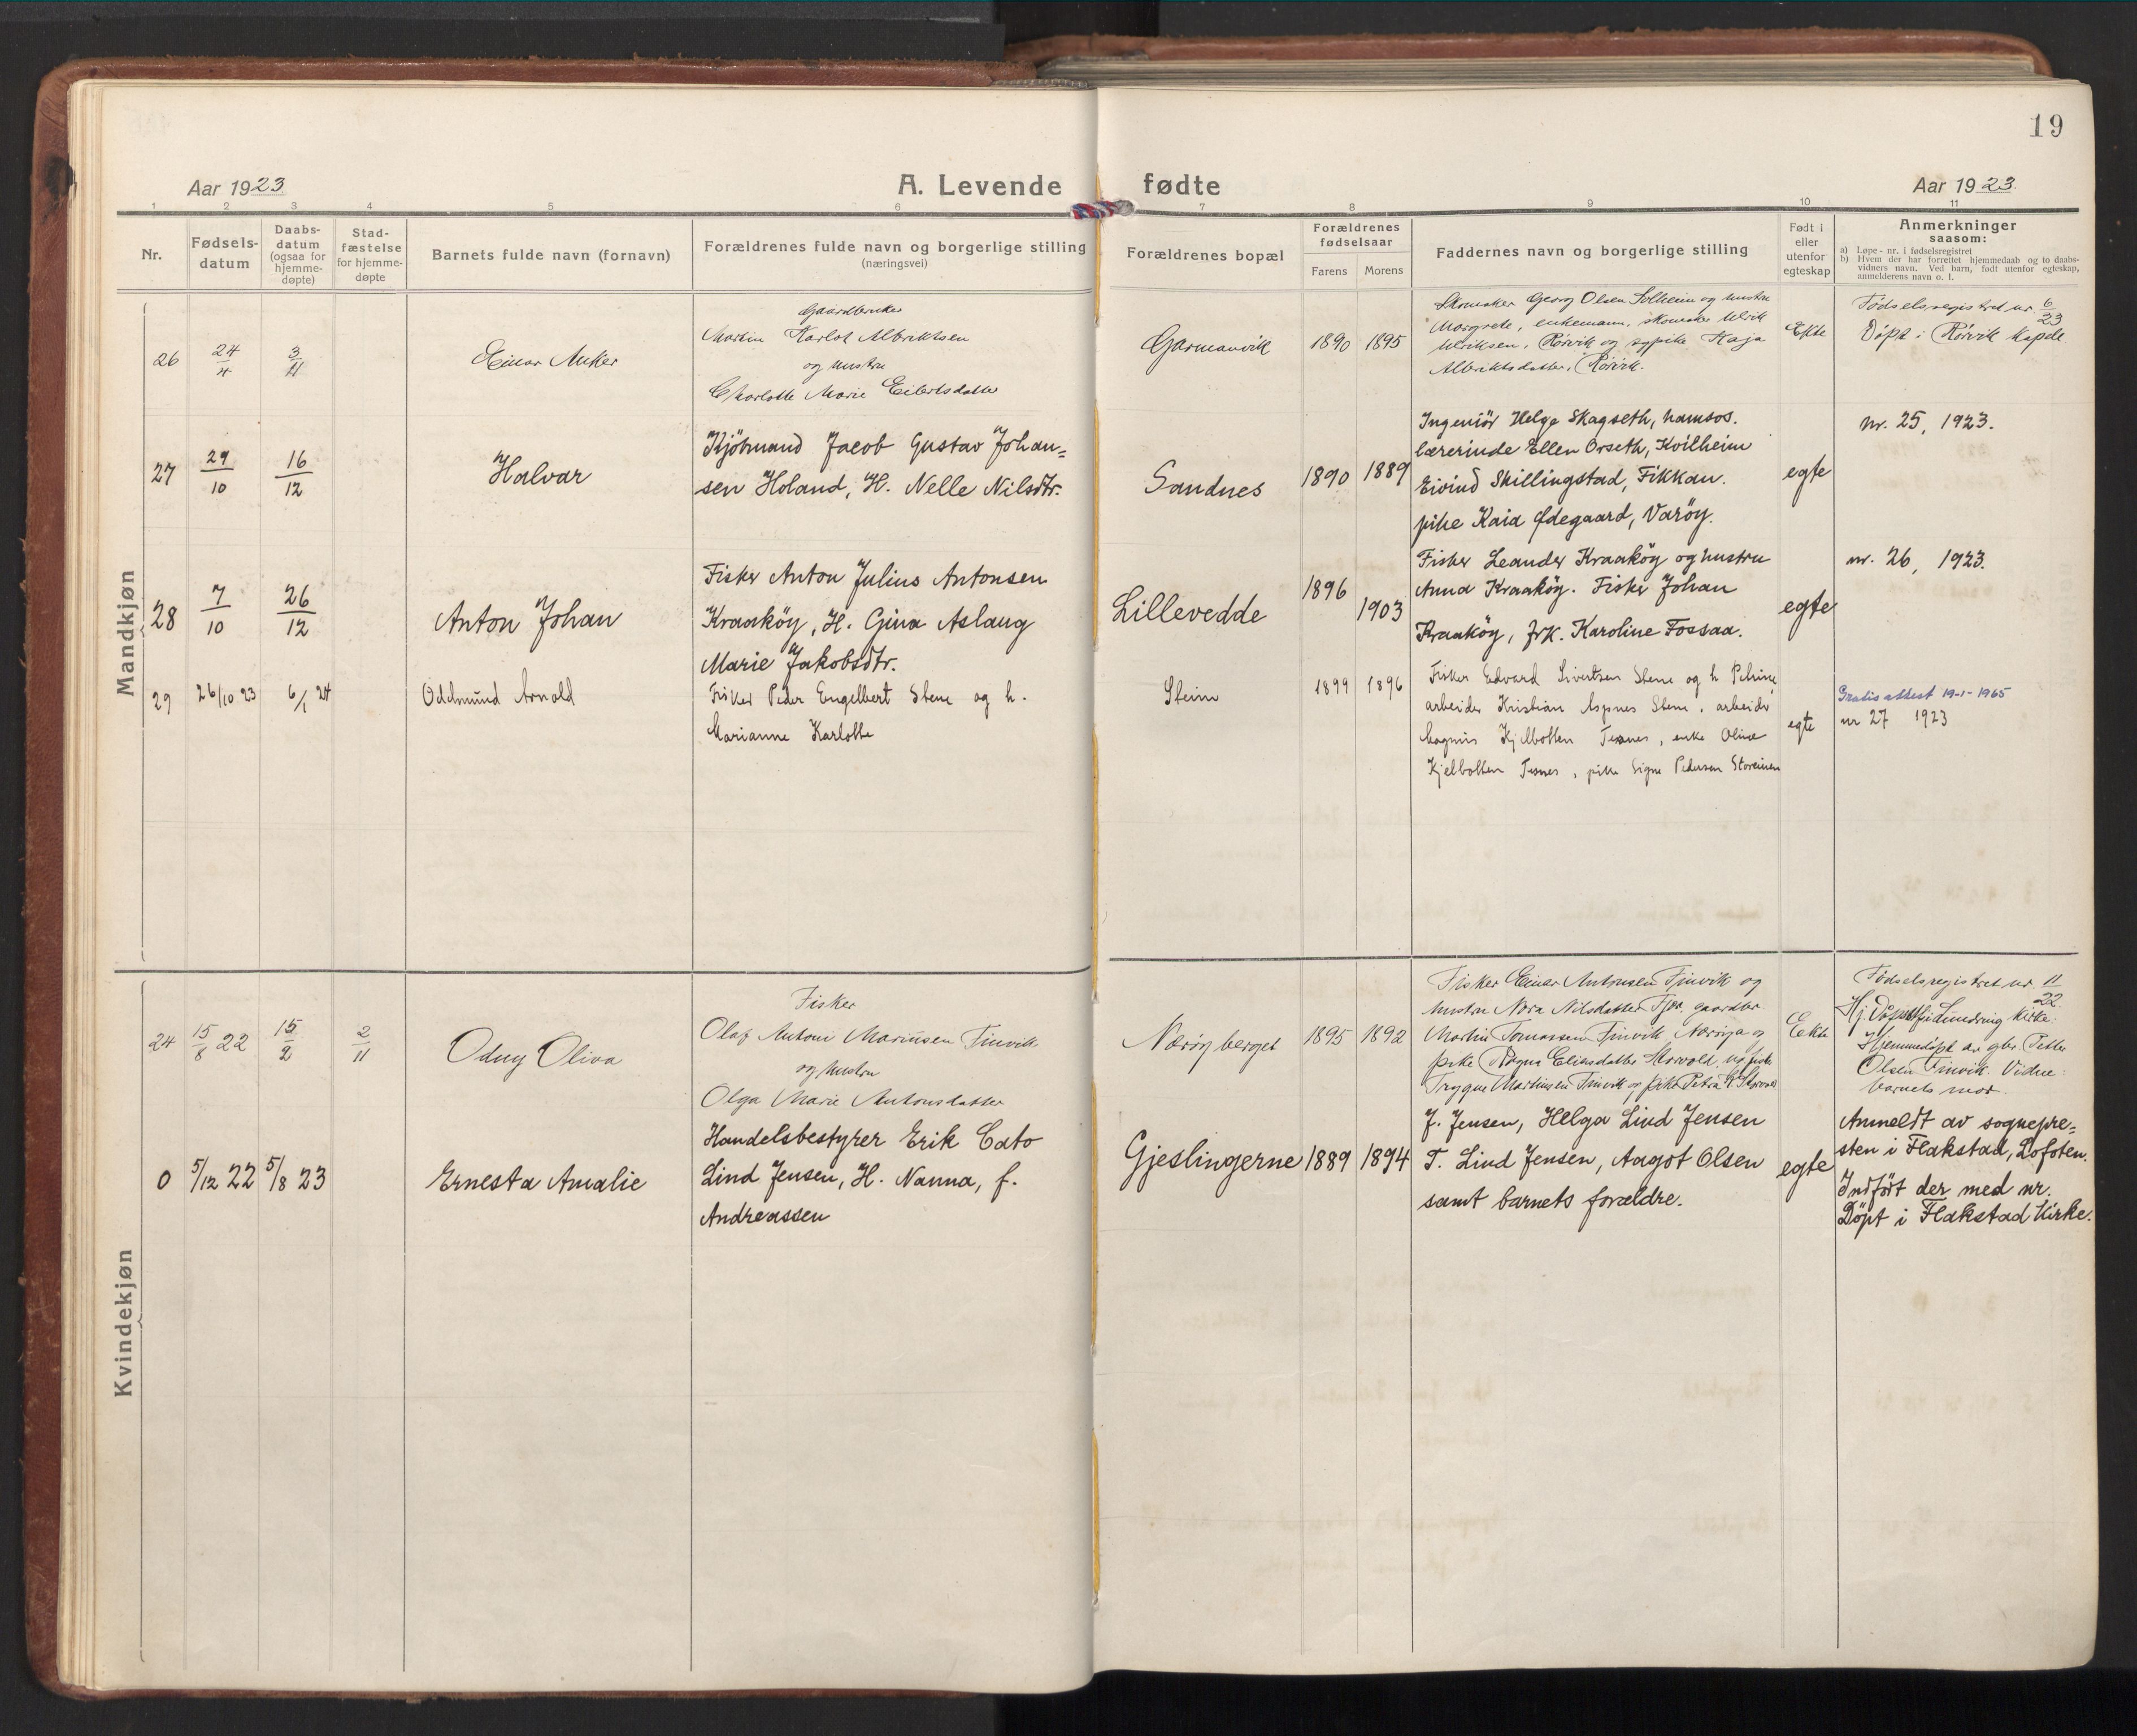 19
Aar 1923
A. Levende fødte
Aar 1923.
1 2 3 4 5 6 7 8 9 10 11
Nr.
Fødsels-
datum
Daabs-
datum
(ogsaa for
hjemme-
døpte)
Stad-
fæstelse
for hjemme-
døpte
Barnets fulde navn (fornavn)
Forældrenes fulde navn og borgerlige stilling
(næringsvei)
Forældrenes bopæl
Forældrenes
fødselsaar
Farens Morens
Faddernes navn og borgerlige stilling
Født i
eller
utenfor
egteskap
Anmerkninger
saasom:
a) Løpe-nr. i fødselsregistret
b) Hvem der har forrettet hjemmedaab og to daabs-
vidners navn. Ved barn, født utenfor egteskap,
anmelderens navn o. l.
Mandkjøn
26
24/4
3/11
Einar Anker
Gaardbruker
Martin Karlot Albriktsen
og hustru
Charlotte Marie Eilertsdatter
Garmanvik
1890 1895
Skomaker Georg Olsen Solheim og hustru
Margrete, enkemann, skomaker Ulrik
Ulriksen, Rørvik og sypike Kaja
Albriktsdatter, Rørvik.
Ekte
Fødselsregistret nr 6/23
Døpt i Rørvik kapele
27
29/10
16/12
Halvar
Kjöbmand Jacob Gustav Johan=
sen Holand, H. Nelle Nilsdtr.
Sandnes
1890 1889
Ingeniör Helge Skagseth, Namsos.
lærerinde Ellen Orseth, Kvilheim
Eivind Skillingstad, Fikkan.
pike Kaia Ødegaard, Varöy.
egte
nr. 25, 1923.
28
7/10
26/12
Anton Johan
Fisker Anton Julius Antonsen
Kraaköy, H. Gina Aslaug
Marie Jakobsdtr.
Lillevedde
1896 1903
Fisker Leander Kraaköy og hustru
Anna Kraaköy. Fisker Johan
Kraaköy, frk. Karoline Fossaa.
egte
nr. 26, 1923.
29
26/10 23
6/1 24
Oddmund Arnold
Fisker Peder Engelbert Stene og h.
Marianne Karlotte
Steine
1899 1896
Fisker Edvard Sivertsen Stene og h Petrine,
arbeider Kristian Aspnes Stene, arbeider
Magnus Kjelbotten Tesnes, enke Oline
Kjelbotten Tesnes, pike Signe Pedersen Storeinen
egte
Gratis attest 19-1-1965
nr 27 1923
Kvindekjøn
24
15/8 22
15/2
2/11
Odny Oliva
Fisker
Olaf Antoni Marinsen Finvik
og hustru
Olga Marie Antonsdatter
Nærøyberget
1895 1892
Fisker Einar Antonsen Finvik og
hustru Nora Nilsdatter Fjær, gaardbr.
Martin Tomassen Finvik Nærøya og
pike Ragna Eliasdatter Storvold, ug. fisker
Trygve Martinsen Finvik og pike Petra K. Storvold
Ekte
Fødselsregistret nr. 11/22.
kirke.
Hjemmedøpt av gbr. Petter
Olsen Finvik. Vidne:
barnets mor.
0
5/12 22
5/8 23
Ernesta Amalie
Handelsbestyrer Erik Cato
Lind Jensen, H. Nanna, f.
Andreassen
Gjeslingerne
1889 1894
J. Jensen, Helga Lind Jensen
T. Lind Jensen, Aagot Olsen
samt barnets forældre.
egte
Anmeldt av sognepre=
sten i Flakstad, Lofoten.
Indfört der med nr.
Döpt i Flakstad Kirke.